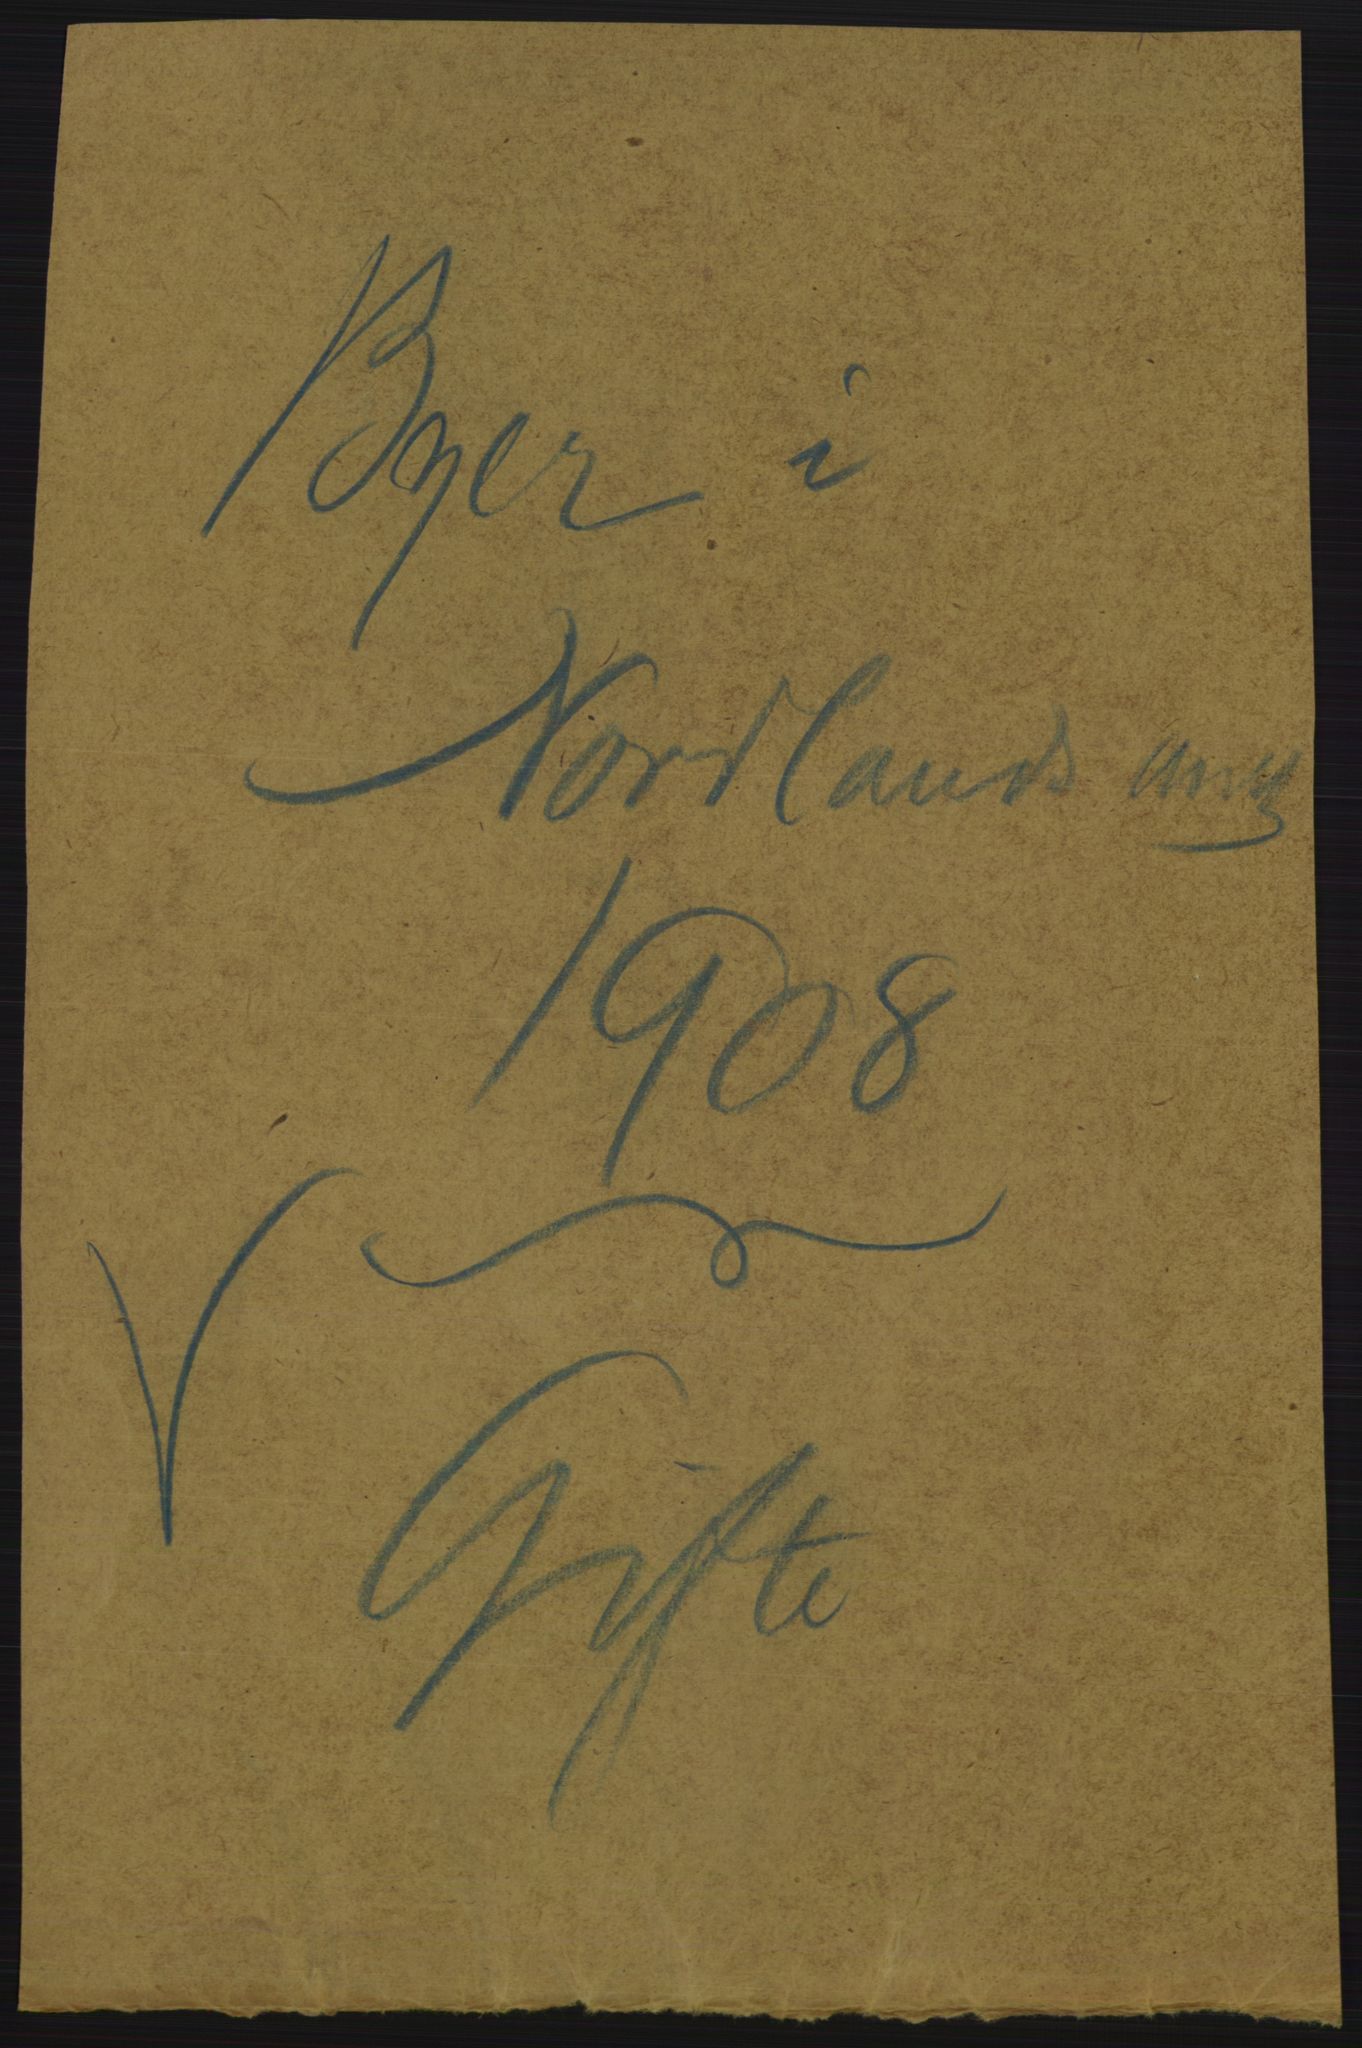 Byer i
Nordlands amt
1908
Gifte